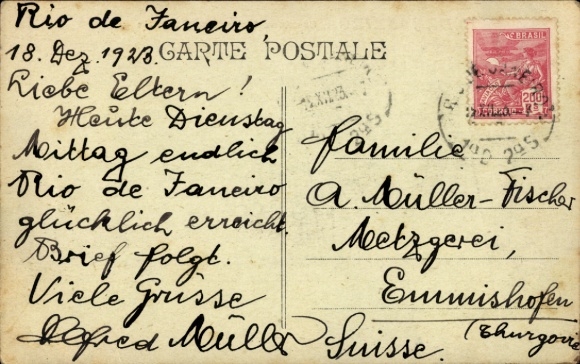 Rio de Janeiro,
18. Dez. 1923.
CARTE POSTALE
Liebe Eltern!
Heute Dienstag
Mittag endlich
Rio de Janeiro
glücklich erreicht.
Brief folgt.
Viele Grüsse
Alfred Müller
BRASIL
200
Familie
A. Müller-Fischer
Metzgerei,
Emmishofen
(Thurgovie
Suisse.